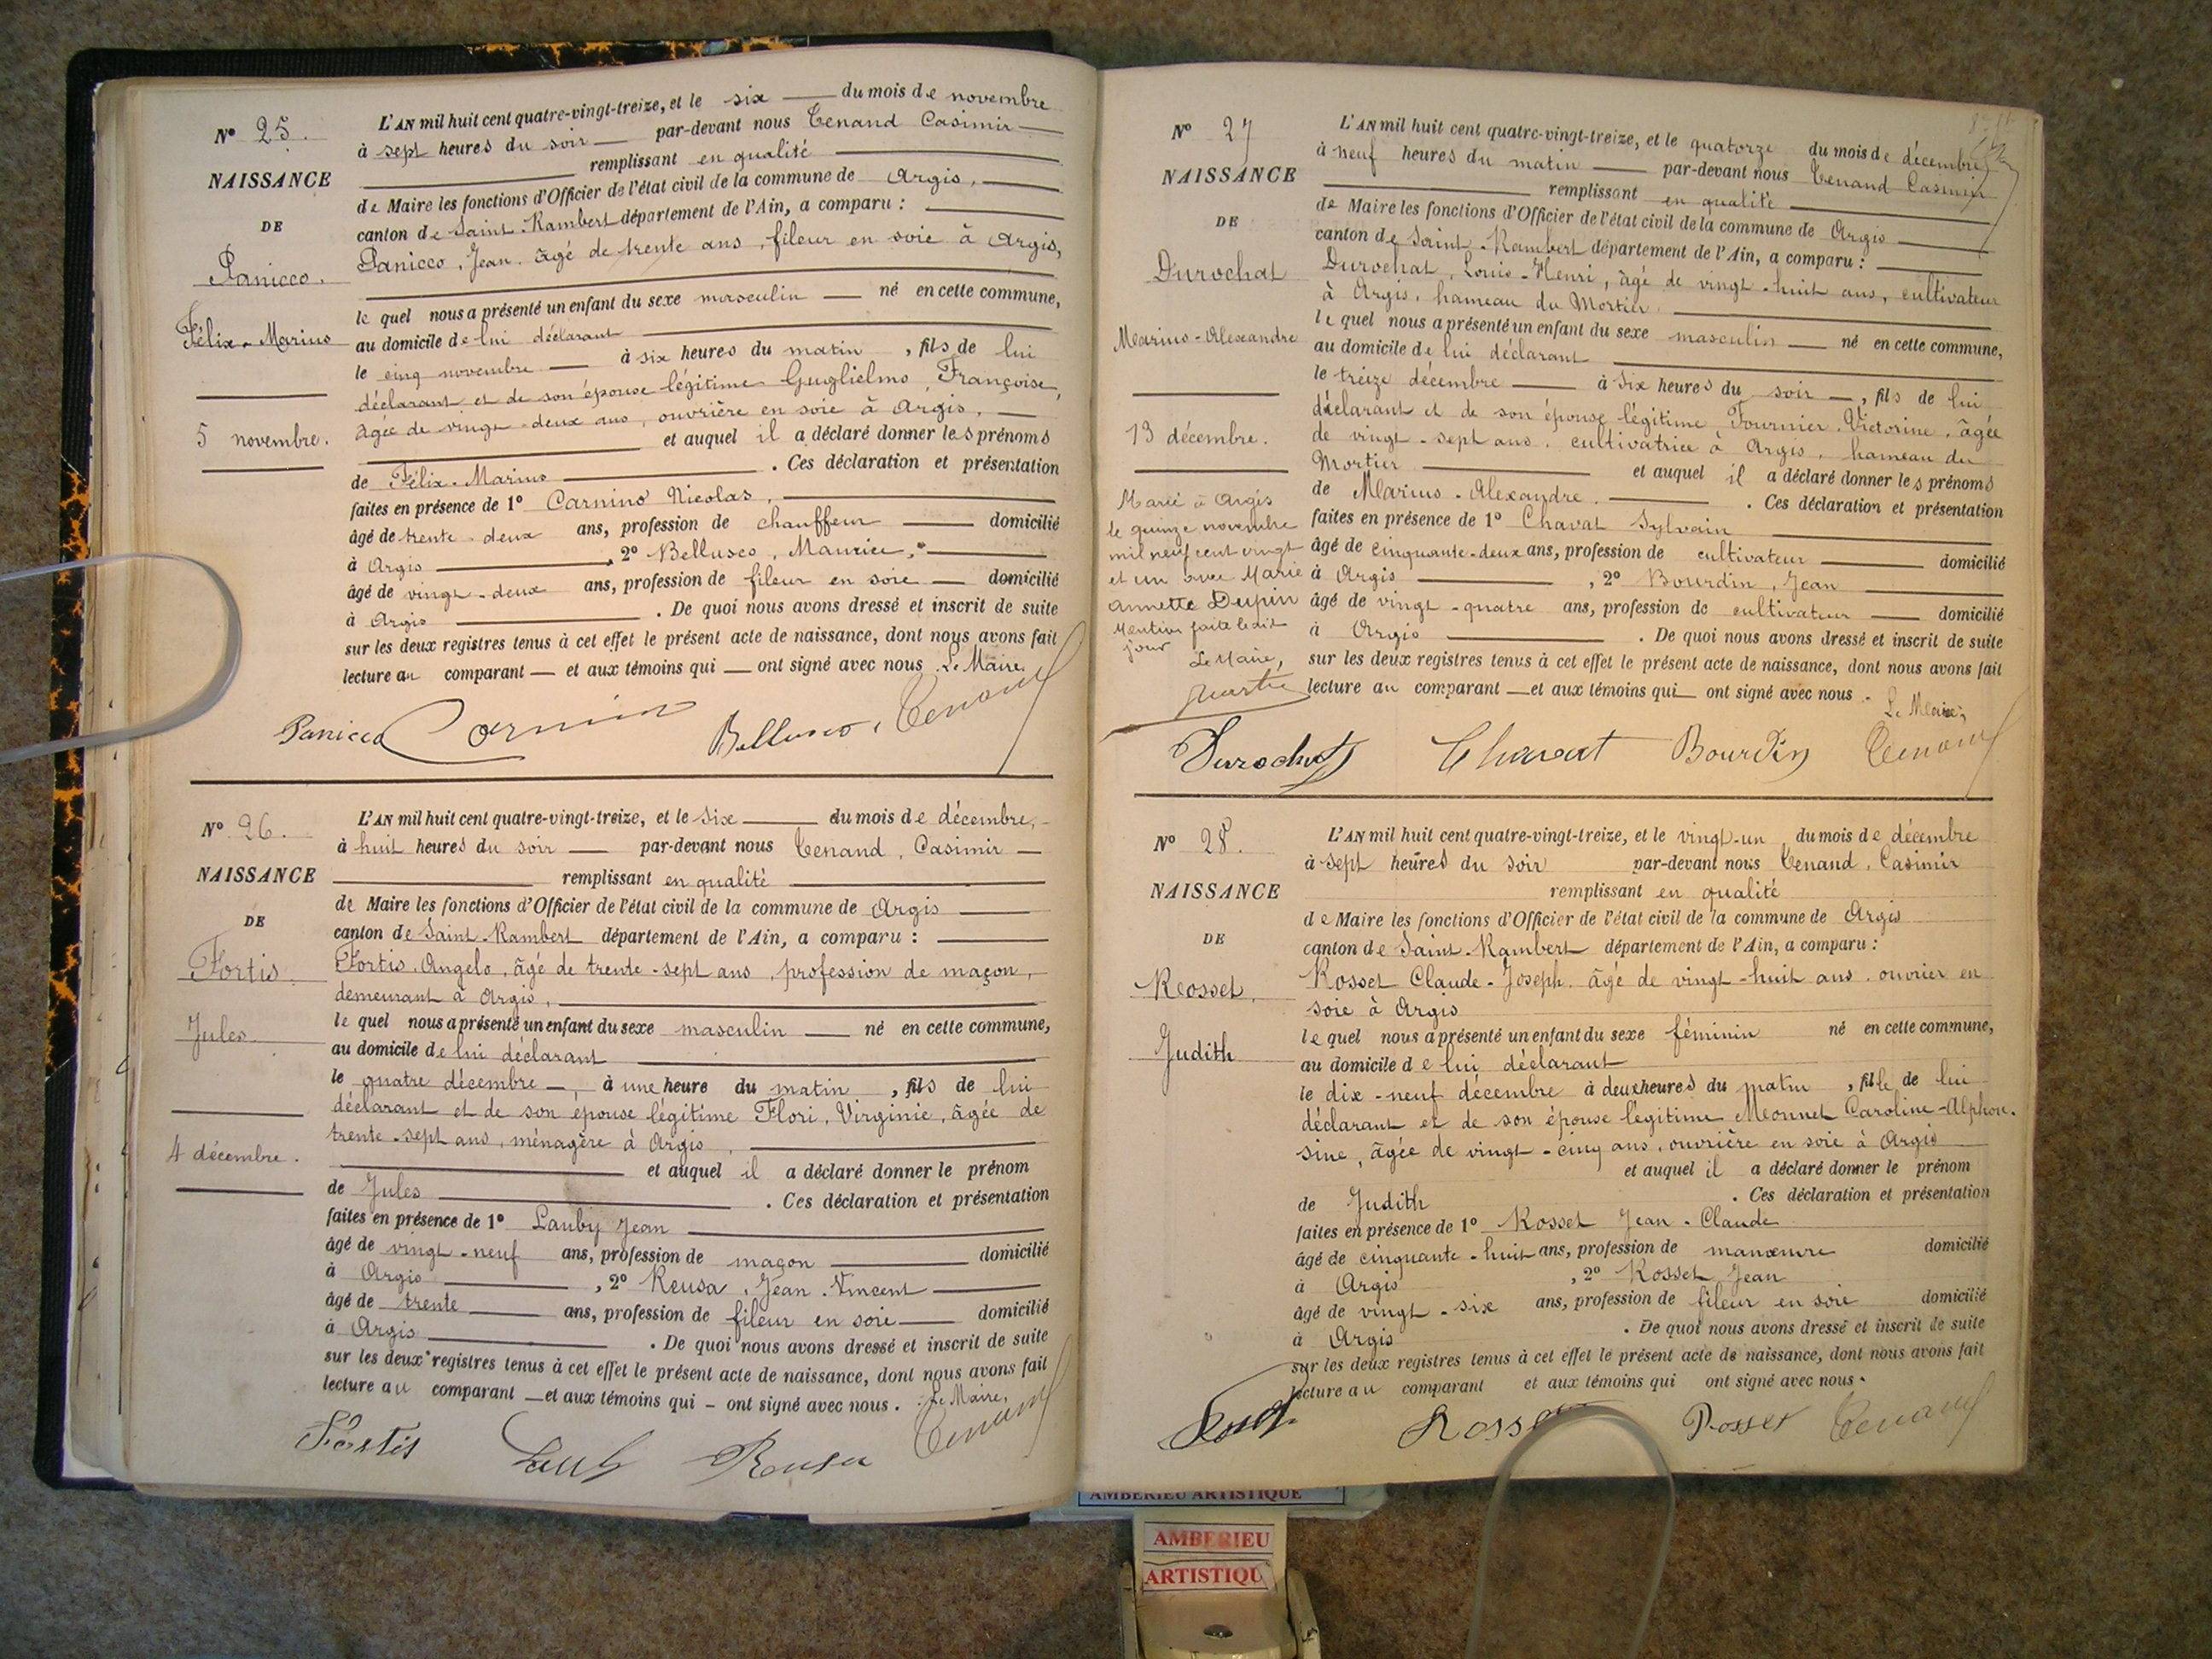 N° 25.
NAISSANCE
DE
Panicco.
Félix-Marius
5 novembre.
L'AN mil huit cent quatre-vingt-treize, et le six du mois de novembre
à sept heures du soir par-devant nous Tenand Casimir
remplissant en qualité
de Maire les fonctions d'Officier de l'état civil de la commune de Argis,
canton de Saint-Rambert département de l'Ain, a comparu :
Panicco, Jean, âgé de trente ans, fileur en soie à Argis,
le quel nous a présenté un enfant du sexe masculin né en cette commune,
au domicile de lui déclarant
le cinq novembre à six heures du matin, fils de lui
déclarant et de son épouse légitime Guglielmo, Françoise,
âgée de vingt-deux ans, ouvrière en soie à Argis,
et auquel il a déclaré donner les prénoms
de Félix-Marius. Ces déclaration et présentation
faites en présence de 1° Carnino Nicolas,
âgé de trente-deux ans, profession de chauffeur domicilié
à Argis, 2° Bellusco, Maurice,
âgé de vingt-deux ans, profession de fileur en soie domicilié
à Argis. De quoi nous avons dressé et inscrit de suite
sur les deux registres tenus à cet effet le présent acte de naissance, dont nous avons fait
lecture au comparant et aux témoins qui ont signé avec nous. Le Maire,
Panicco Carnino Bellusco, Tenand
N° 26.
NAISSANCE
DE
Fortis.
Jules.
4 décembre.
L'AN mil huit cent quatre-vingt-treize, et le six du mois de décembre,
à huit heures du soir par-devant nous Tenand, Casimir
remplissant en qualité
de Maire les fonctions d'Officier de l'état civil de la commune de Argis
canton de Saint-Rambert département de l'Ain, a comparu :
Fortis, Angelo, âgé de trente-sept ans, profession de maçon,
demeurant à Argis,
le quel nous a présenté un enfant du sexe masculin né en cette commune,
au domicile de lui déclarant
le quatre décembre à une heure du matin, fils de lui
déclarant et de son épouse légitime Flori, Virginie, âgée de
trente-sept ans, ménagère à Argis,
et auquel il a déclaré donner le prénom
de Jules. Ces déclaration et présentation
faites en présence de 1° Lauby Jean
âgé de vingt-neuf ans, profession de maçon domicilié
à Argis, 2° Reusa, Jean-Vincent
âgé de trente ans, profession de fileur en soie domicilié
à Argis. De quoi nous avons dressé et inscrit de suite
sur les deux registres tenus à cet effet le présent acte de naissance, dont nous avons fait
lecture au comparant et aux témoins qui ont signé avec nous. Le Maire,
Fortis Lauby Reusa Tenand
N° 27
NAISSANCE
DE
Durochat
Marius-Alexandre
13 décembre.
Marié à Argis
le quinze novembre
mil neuf cent vingt
et un avec Marie
Annette Dupin
Mention faite le dit
jour
Le Maire,
L'AN mil huit cent quatre-vingt-treize, et le quatorze du mois de décembre
à neuf heures du matin par-devant nous Tenand Casimir
remplissant en qualité
de Maire les fonctions d'Officier de l'état civil de la commune de Argis
canton de Saint-Rambert département de l'Ain, a comparu :
Durochat, Louis-Henri, âgé de vingt-huit ans, cultivateur
à Argis, hameau du Mortier
le quel nous a présenté un enfant du sexe masculin né en cette commune,
au domicile de lui déclarant
le treize décembre à six heures du soir, fils de lui
déclarant et de son épouse légitime Fournier, Victorine, âgée
de vingt-sept ans, cultivatrice à Argis, hameau du
Mortier et auquel il a déclaré donner les prénoms
de Marius-Alexandre. Ces déclaration et présentation
faites en présence de 1° Chavat Sylvain
âgé de cinquante-deux ans, profession de cultivateur domicilié
à Argis, 2° Bourdin, Jean
âgé de vingt-quatre ans, profession de cultivateur domicilié
à Argis. De quoi nous avons dressé et inscrit de suite
sur les deux registres tenus à cet effet le présent acte de naissance, dont nous avons fait
lecture au comparant et aux témoins qui ont signé avec nous. Le Maire,
Durochat Chavat Bourdin Tenand
N° 28.
NAISSANCE
DE
Rosset,
Judith
L'AN mil huit cent quatre-vingt-treize, et le vingt-un du mois de décembre
à sept heures du soir par-devant nous Tenand, Casimir
remplissant en qualité
de Maire les fonctions d'Officier de l'état civil de la commune de Argis
canton de Saint-Rambert département de l'Ain, a comparu :
Rosset Claude-Joseph, âgé de vingt-huit ans, ouvrier en
soie à Argis
le quel nous a présenté un enfant du sexe féminin né en cette commune,
au domicile de lui déclarant
le dix-neuf décembre à deux heures du matin, fille de lui
déclarant et de son épouse légitime Monnet Caroline-Alphon-
sine, âgée de vingt-cinq ans, ouvrière en soie à Argis
et auquel il a déclaré donner le prénom
de Judith. Ces déclaration et présentation
faites en présence de 1° Rosset Jean-Claude
âgé de cinquante-huit ans, profession de manœuvre domicilié
à Argis, 2° Rosset Jean
âgé de vingt-six ans, profession de fileur en soie domicilié
à Argis. De quoi nous avons dressé et inscrit de suite
sur les deux registres tenus à cet effet le présent acte de naissance, dont nous avons fait
lecture au comparant et aux témoins qui ont signé avec nous.
Rosset Rosset Tenand
AMBERIEU ARTISTIQUE
AMBERIEU
ARTISTIQU